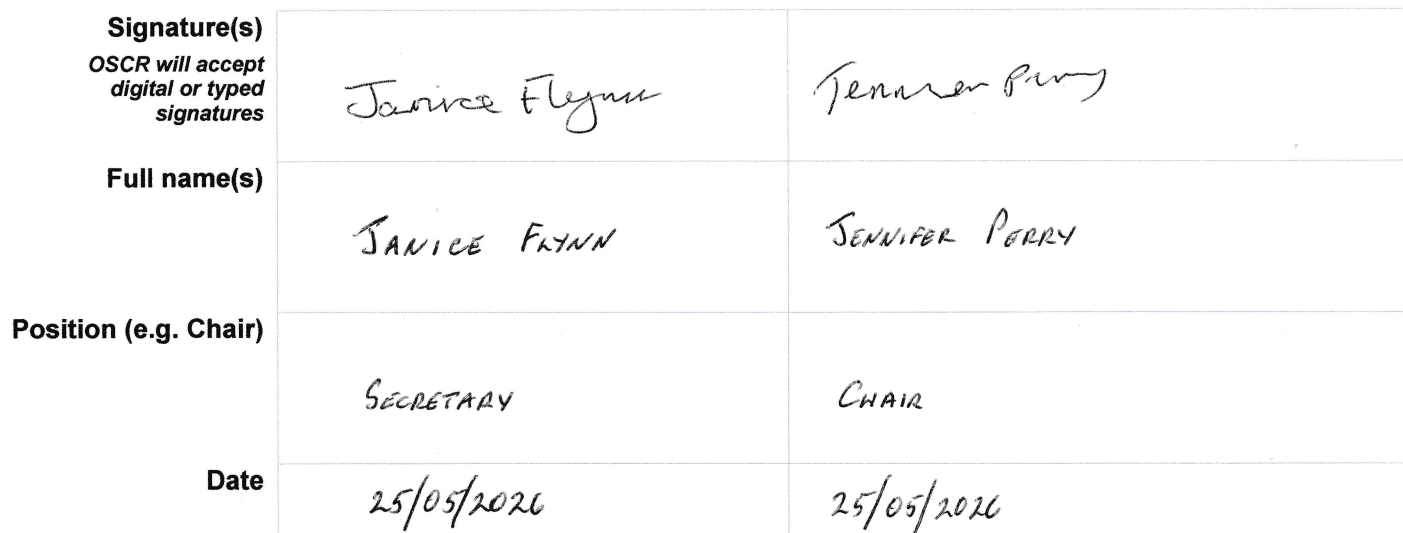 Signature(s)
OSCR will accept
digital or typed
signatures
Janice Flynn
Full name(s)
JANICE FLYNN JENNIFER PERRY
Position (e.g. Chair)
SECRETARY CHAIR
Date
25/05/2026 25/05/2026